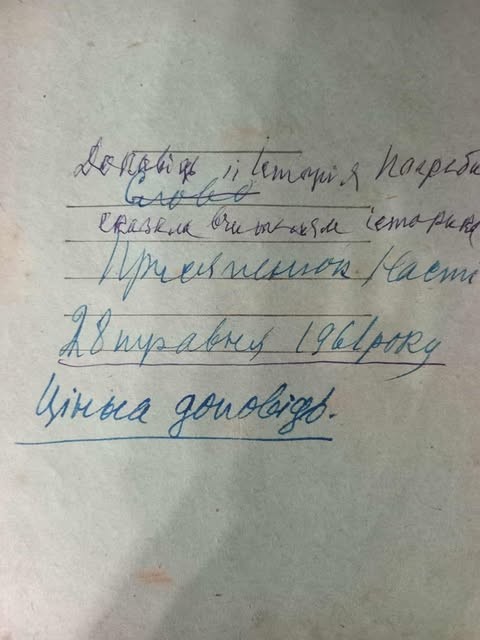 Доповідь „Історія Погреби
Слово
сказала вчителькам історика
Присяженюк Насті
28 травня 1961 року
Цінна доповідь.